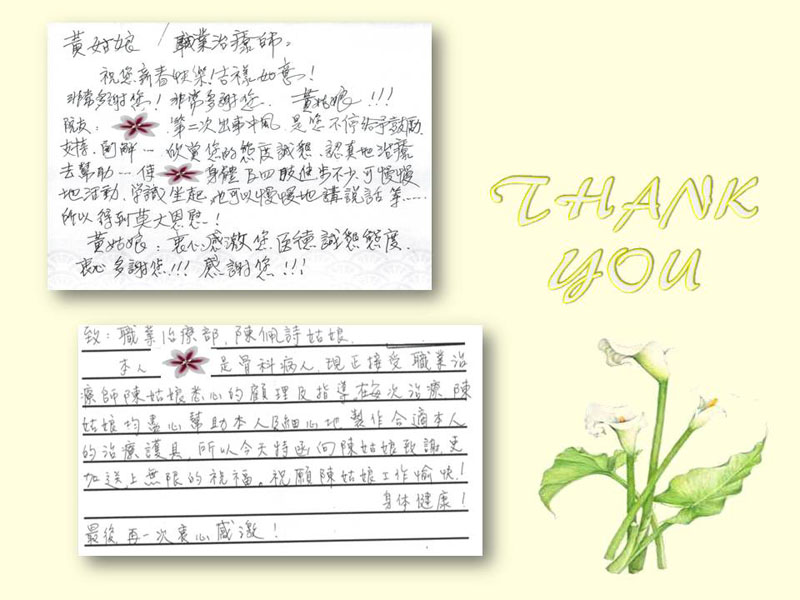 黃姑娘 / 職業治療師:
祝您新春快樂!吉祥如意!
非常多謝您! 非常多謝您. 黃姑娘!!!
院友: 第二次出事中風, 是您不停給予鼓勵
支持, 開解… 欣賞您的態度誠懇, 認真地治療
去幫助…使 身體及四肢進步不少, 可慢慢
地活動, 學識坐起, 也可以慢慢地講說話等……
所以得到莫大恩慰!
黃姑娘: 衷心感激您, 医德誠懇態度,
衷心多謝您!!! 感謝您!!!
THANK
YOU
致: 職業治療部, 陳佩詩姑娘
本人 是骨科病人, 現正接受職業治
療師陳姑娘悉心的顧理及指導, 在每次治療, 陳
姑娘均盡心幫助本人及細心地製作合適本人
的治療護具, 所以今天特函向陳姑娘致謝, 更
加送上無限的祝福。祝願陳姑娘工作愉快!
身体健康!
最後再一次衷心感激!